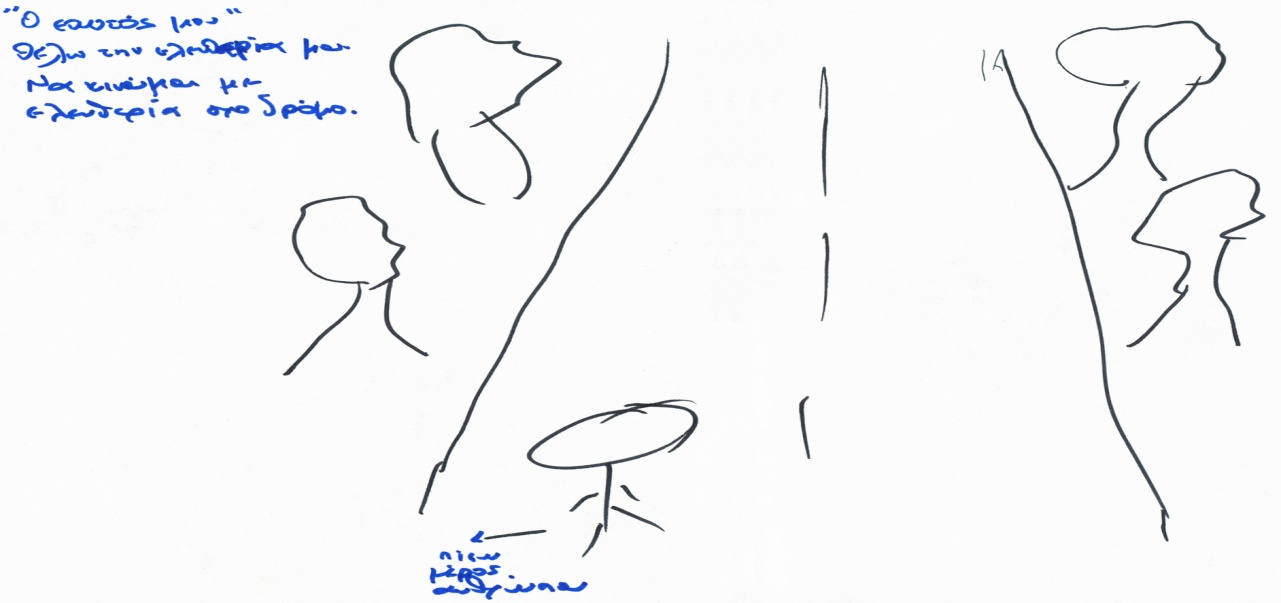 "Ο εαυτός μου"
Θέλω την ελευθερία μου
Να κινούμαι με
ελευθερία στο δρόμο.
πίσω
μέρος
ανθρώπου